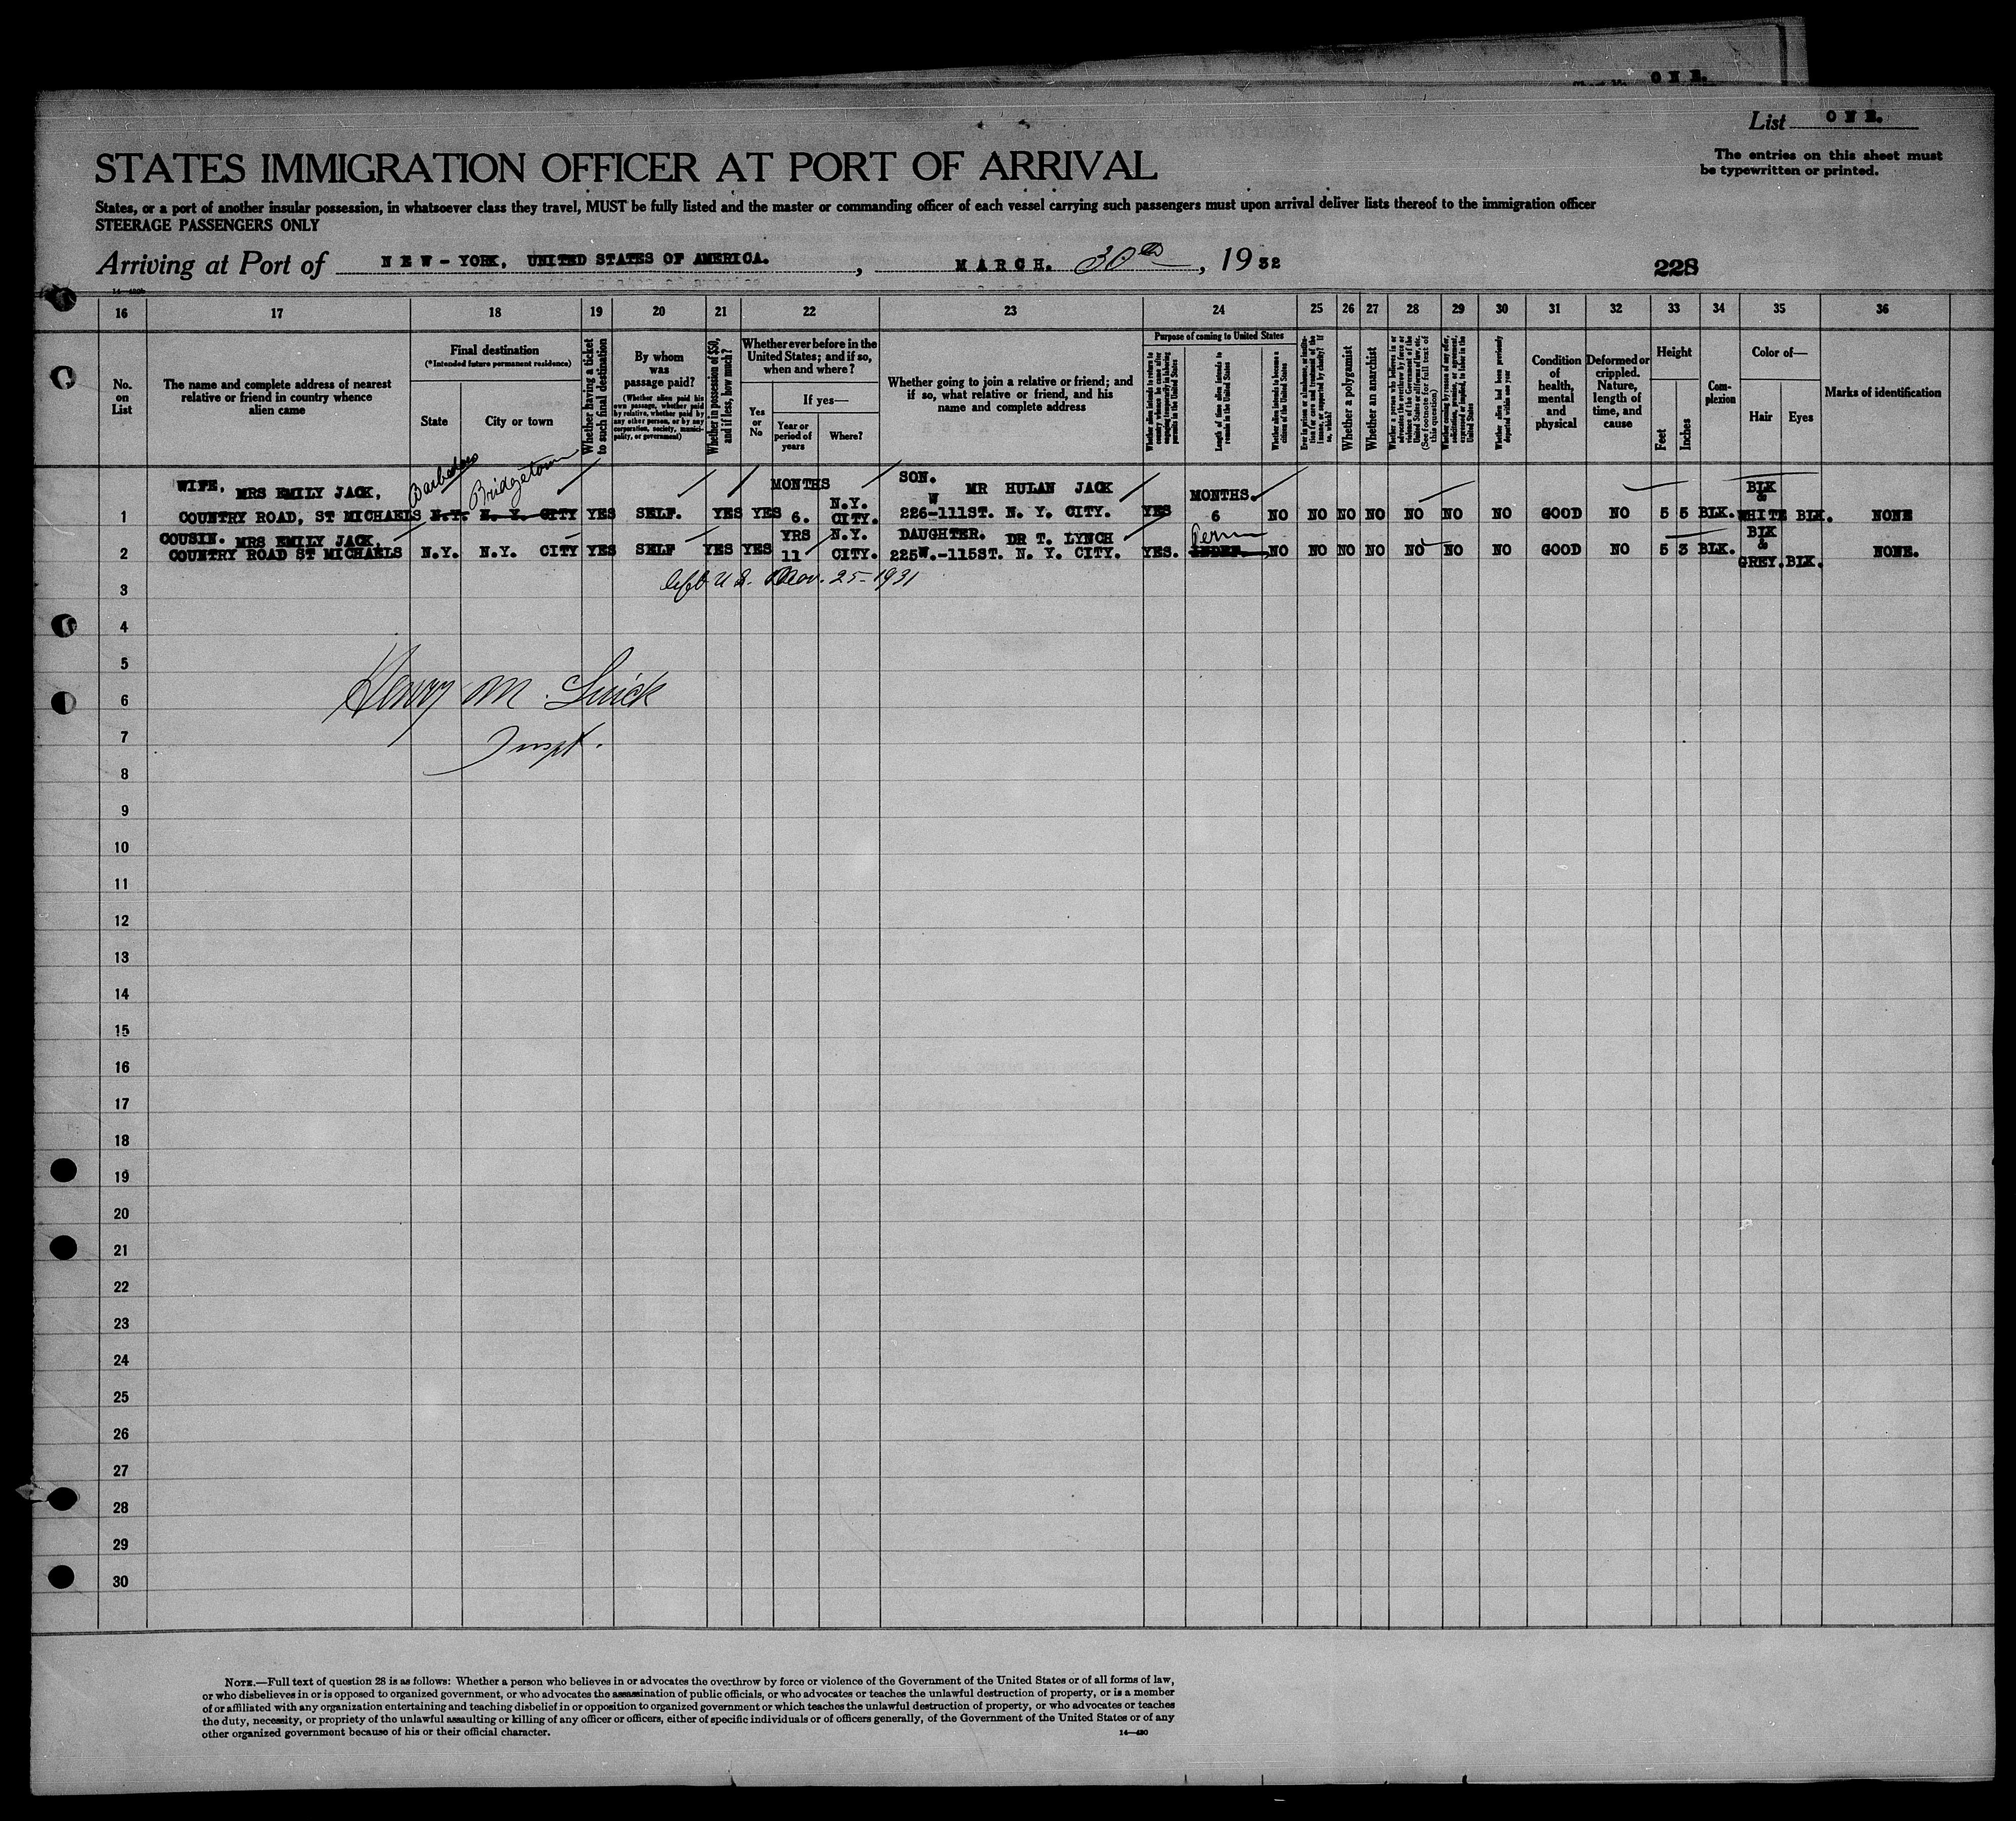 ONE.
List ONE.
The entries on this sheet must
be typewritten or printed.
STATES IMMIGRATION OFFICER AT PORT OF ARRIVAL
States, or a port of another insular possession, in whatsoever class they travel, MUST be fully listed and the master or commanding officer of each vessel carrying such passengers must upon arrival deliver lists thereof to the immigration officer
STEERAGE PASSENGERS ONLY
Arriving at Port of NEW-YORK, UNITED STATES OF AMERICA. , MARCH. 30th , 1932
228
16 17 18 19 20 21 22 23 24 25 26 27 28 29 30 31 32 33 34 35 36
No. on List
The name and complete address of nearest relative or friend in country whence alien came
Final destination
(*Intended future permanent residence)
State
City or town
Whether having a ticket to such final destination
By whom was passage paid?
(Whether alien paid his own passage, whether paid by relative, whether paid by any other person, or by any corporation, society, municipality, or government)
Whether in possession of $50, and if less, how much?
Whether ever before in the United States; and if so, when and where?
Yes or No
If yes—
Year or period of years
Where?
Whether going to join a relative or friend; and if so, what relative or friend, and his name and complete address
Purpose of coming to United States
Whether alien intends to return to country whence he came after engaging temporarily in laboring pursuits in the United States
Length of time alien intends to remain in the United States
Whether alien intends to become a citizen of the United States
Ever in prison or almshouse, or institution for care and treatment of the insane, or supported by charity? If so, which?
Whether a polygamist
Whether an anarchist
Whether a person who believes in or advocates the overthrow by force or violence of the Government of the United States or all forms of law, etc. (See footnote for full text of this question)
Whether coming by reason of any offer, solicitation, promise, or agreement, expressed or implied, to labor in the United States
Whether alien had been previously deported within one year
Condition of health, mental and physical
Deformed or crippled. Nature, length of time, and cause
Height
Feet
Inches
Complexion
Color of—
Hair
Eyes
Marks of identification
Barbados Bridgetown
WIFE. MRS EMILY JACK, MONTHS N.Y. SON. MR HULAN JACK MONTHS. BLK &
1 COUNTRY ROAD, ST MICHAELS N.Y. N. Y. CITY YES SELF. YES YES 6. CITY. 226-W 111ST. N. Y. CITY. YES 6 NO NO NO NO NO NO NO GOOD NO 5 5 BLK. WHITE BLK. NONE
COUSIN. MRS EMILY JACK, YRS N.Y. DAUGHTER. DR T. LYNCH Perm BLK &
2 COUNTRY ROAD ST MICHAELS N.Y. N.Y. CITY YES SELF YES YES 11 CITY. 225W.-115ST. N. Y. CITY. YES. INDEF. NO NO NO NO NO NO NO GOOD NO 5 3 BLK. GREY. BLK. NONE.
left U.S. Nov. 25-1931
3
4
5
6 Henry M.
7 Inspt.
8
9
10
11
12
13
14
15
16
17
18
19
20
21
22
23
24
25
26
27
28
29
30
NOTE.—Full text of question 28 is as follows: Whether a person who believes in or advocates the overthrow by force or violence of the Government of the United States or of all forms of law,
or who disbelieves in or is opposed to organized government, or who advocates the assassination of public officials, or who advocates or teaches the unlawful destruction of property, or is a member
of or affiliated with any organization entertaining and teaching disbelief in or opposition to organized government or which teaches the unlawful destruction of property, or who advocates or teaches
the duty, necessity, or propriety of the unlawful assaulting or killing of any officer or officers, either of specific individuals or of officers generally, of the Government of the United States or of any
other organized government because of his or their official character.
14—430